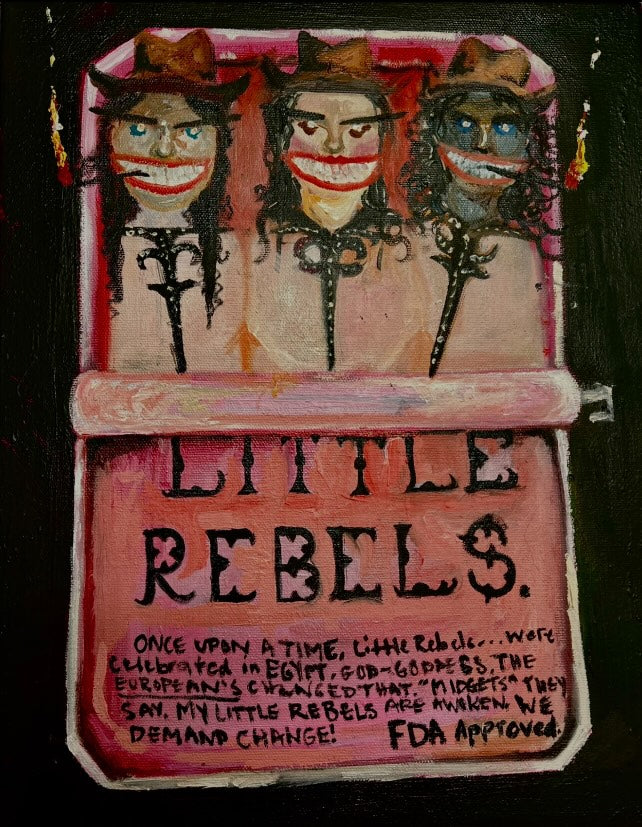 LITTLE
REBELS.
ONCE UPON A TIME, Little Rebels... were
celebrated in EGYPT, GOD-GODDESS. THE
EUROPEAN'S CHANGED THAT. "MIDGETS" THEY
SAY. MY LITTLE REBELS ARE AWOKEN. WE
DEMAND CHANGE! FDA Approved.